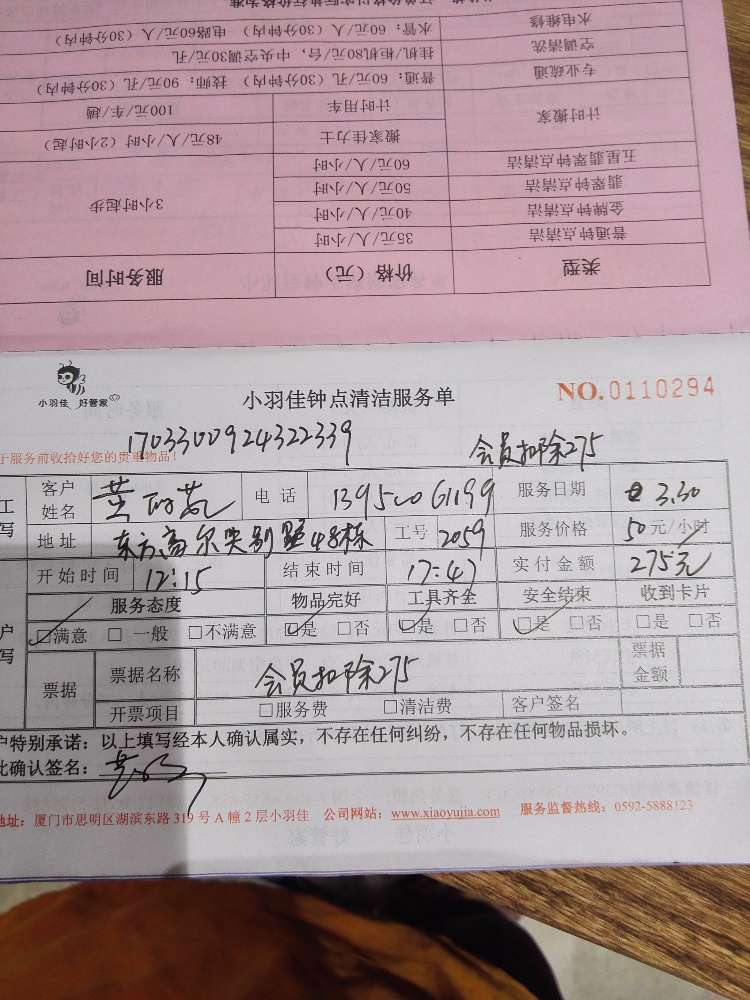 水电维修 水管：60元/人（30分钟内） 电路60元/人（30分钟内）
空调清洗 挂机/柜机80元/台，中央空调30元/孔
专业疏通 普通：60元/孔（30分钟内） 技师：90元/孔（30分钟内）
计时搬家 计时用车 100元/车/趟
搬家佳力士 48元/人/小时（2小时起）
五星翡翠钟点清洁 60元/人/小时
翡翠钟点清洁 50元/人/小时 3小时起步
金牌钟点清洁 40元/人/小时
普通钟点清洁 35元/人/小时
类型 价格（元） 服务时间
小羽佳 好管家
小羽佳钟点清洁服务单
NO.0110294
1703300924322339
会员扣除275
于服务前收拾好您的贵重物品！
工 客户姓名 黄 电话 13950061199 服务日期 3.30
写 地址 东方高尔夫别墅48栋 工号 2059 服务价格 50元/小时
开始时间 12:15 结束时间 17:47 实付金额 275元
服务态度 物品完好 工具齐全 安全结束 收到卡片
户 □满意 □一般 □不满意 □是 □否 □是 □否 □是 □否 □是 □否
写 票据 票据名称 会员扣除275 票据金额
开票项目 □服务费 □清洁费 客户签名
户特别承诺：以上填写经本人确认属实，不存在任何纠纷，不存在任何物品损坏。
此确认签名：
地址：厦门市思明区湖滨东路319号A幢2层小羽佳 公司网站：www.xiaoyujia.com 服务监督热线：0592-5888123